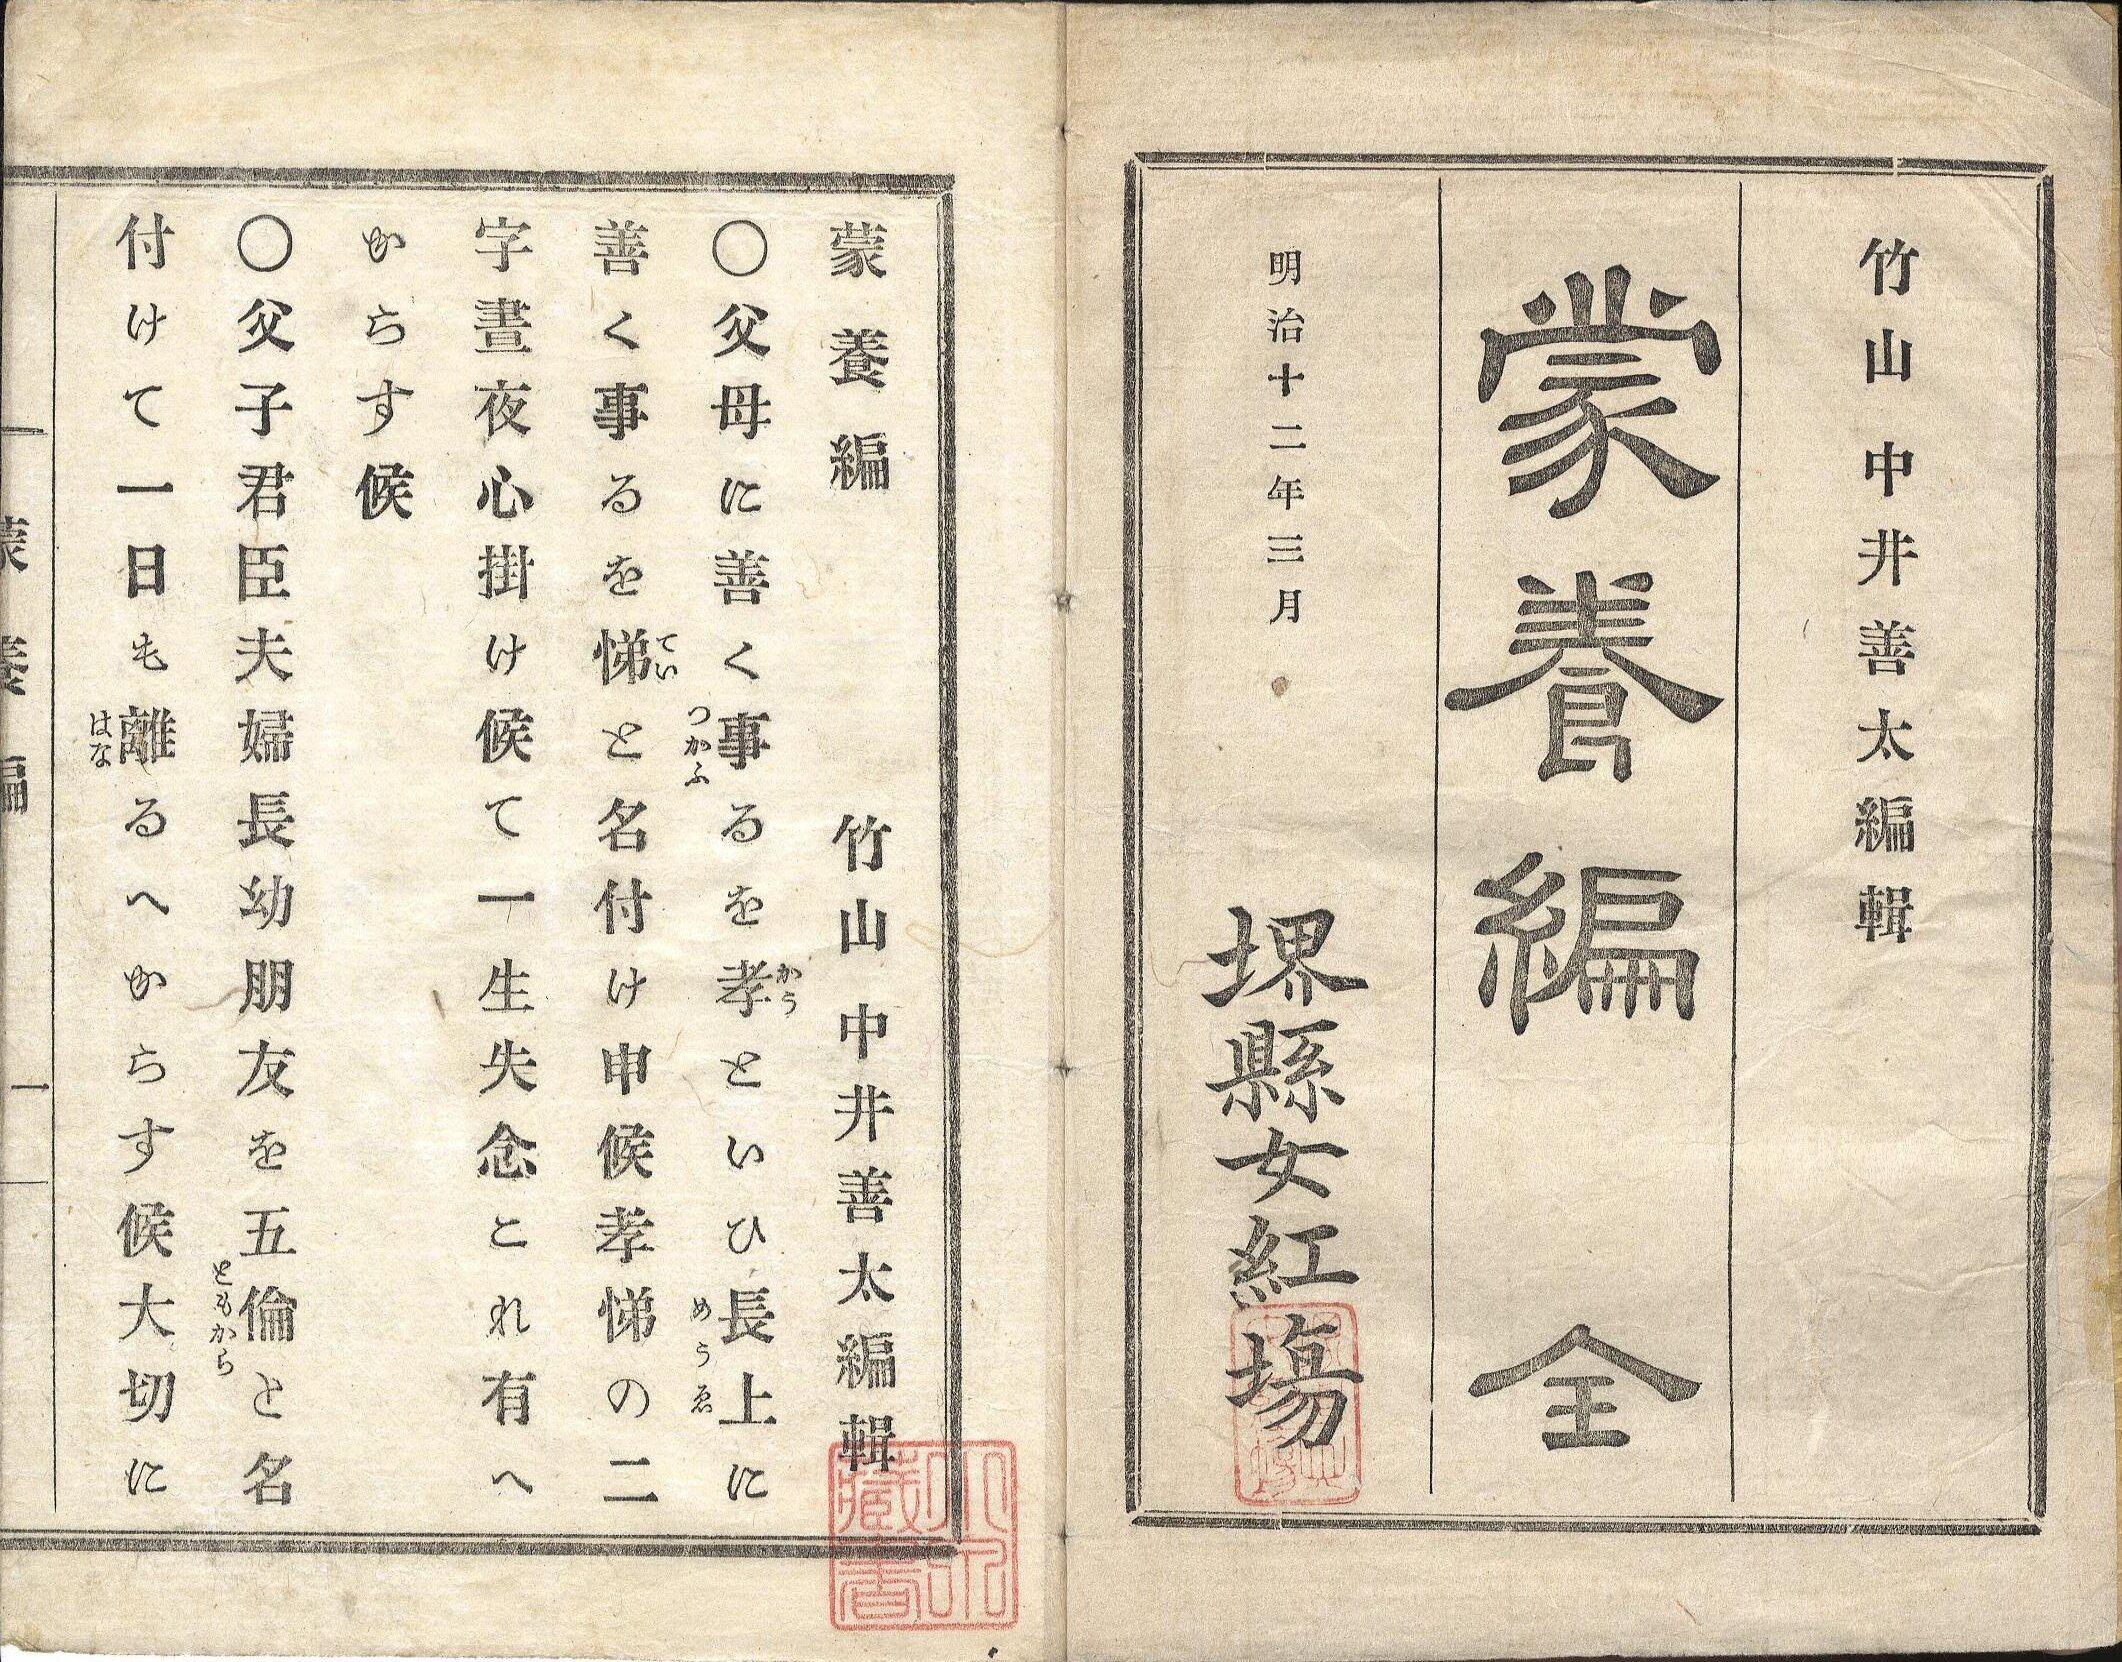 竹山 中井善太編輯
蒙養編 全
明治十二年三月 堺縣女紅塲
蒙養編 竹山 中井善太編輯
〇父母に善く事るを孝といひ長上に
つかふ
かう
めうゑ
善く事るを悌と名付け申候孝悌の二
てい
字晝夜心掛け候て一生失念これ有へ
からす候
〇父子君臣夫婦長幼朋友を五倫と名
ともから
付けて一日も離るへからす候大切に
はな
蒙養編 一
藏書